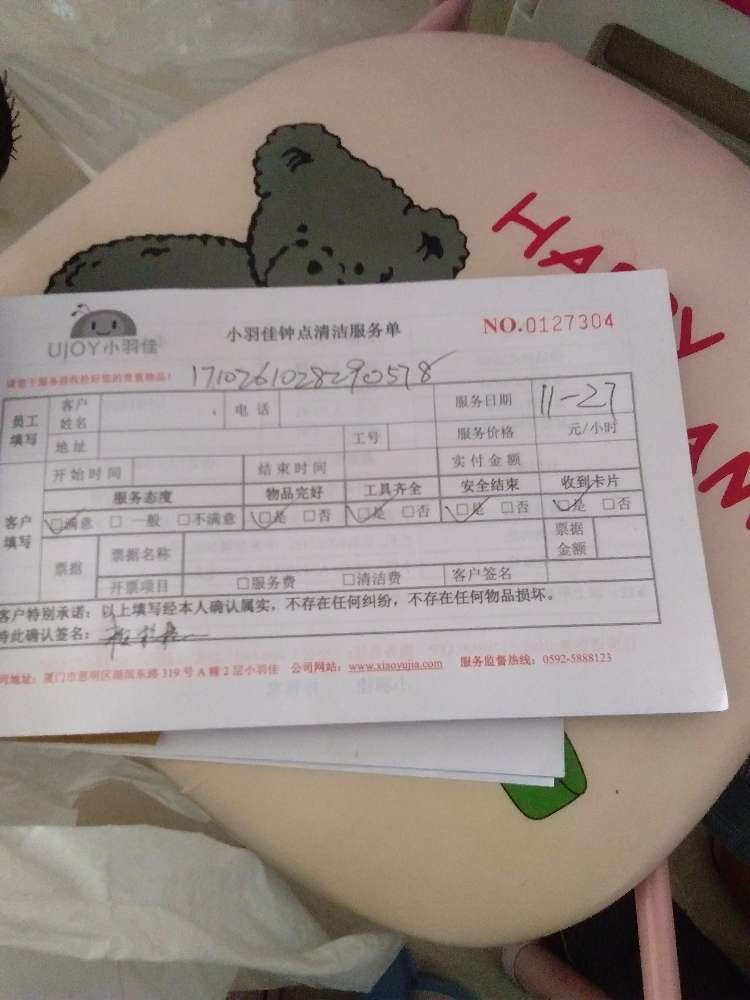 HAPPY
UJOY小羽佳
小羽佳钟点清洁服务单
NO.0127304
请您于服务前收拾好您的贵重物品!
17102610282290578
员工填写 客户姓名 电话 服务日期 11-27
地址 工号 服务价格 元/小时
开始时间 结束时间 实付金额
客户填写 服务态度 物品完好 工具齐全 安全结束 收到卡片
☑满意 □一般 □不满意 ☑是 □否 ☑是 □否 ☑是 □否 ☑是 □否
票据 票据名称 票据金额
开票项目 □服务费 □清洁费 客户签名
客户特别承诺：以上填写经本人确认属实，不存在任何纠纷，不存在任何物品损坏。
特此确认签名：
司地址：厦门市思明区湖滨东路319号A幢2层小羽佳 公司网站：www.xiaoyujia.com 服务监督热线：0592-5888123